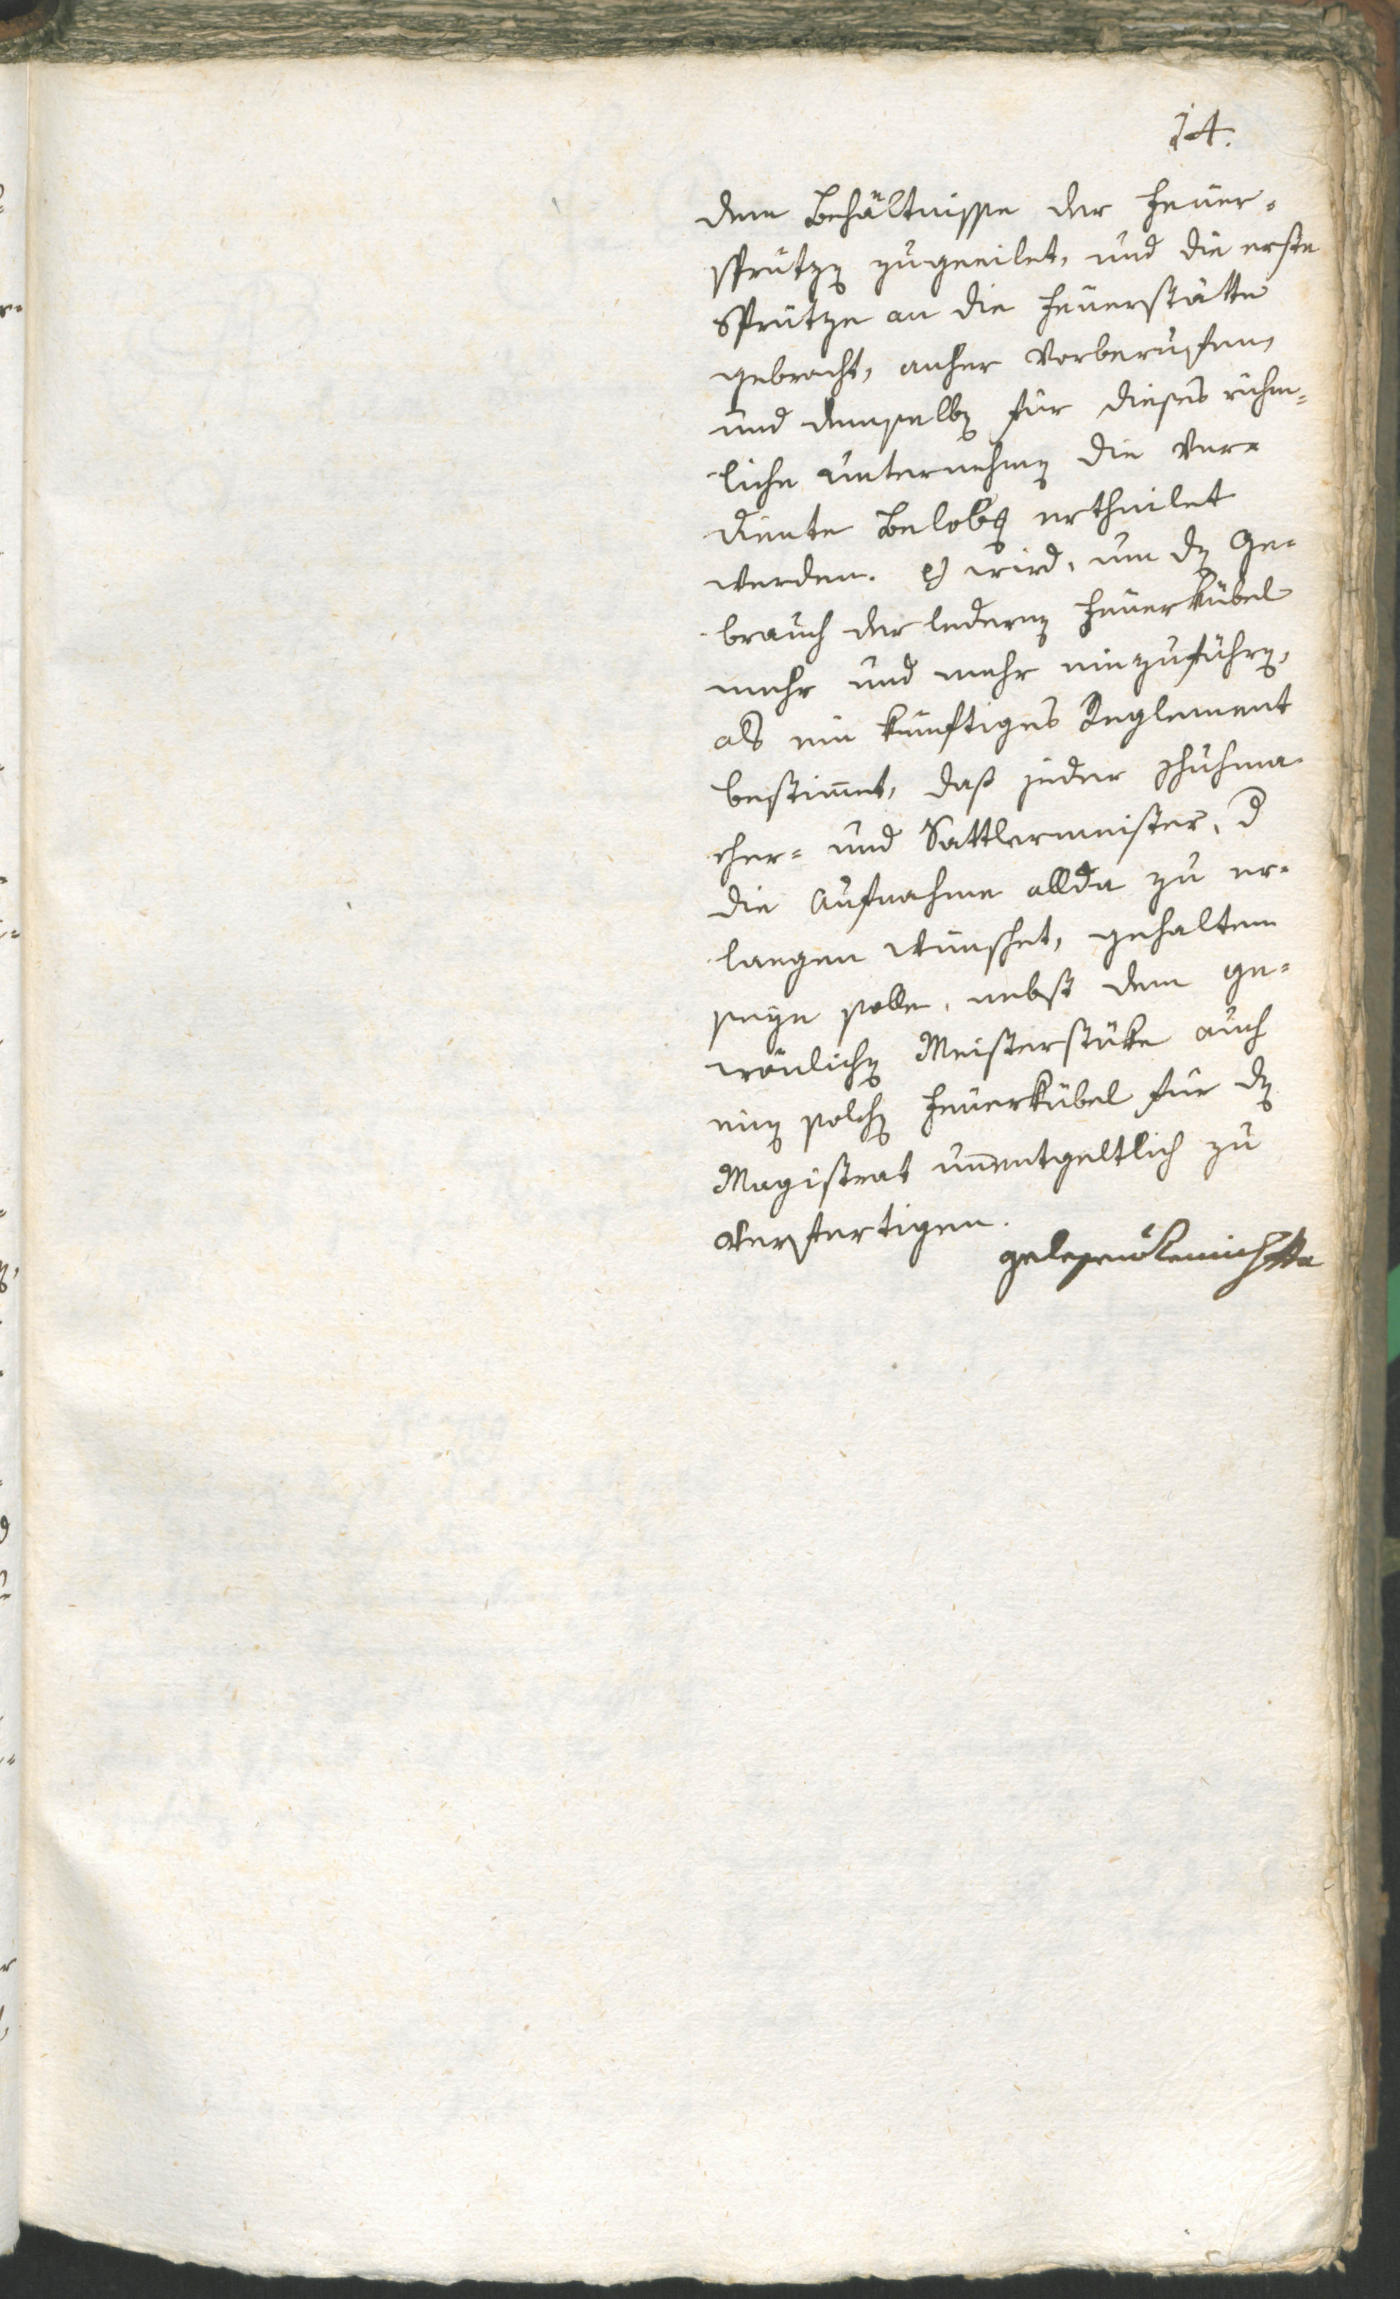 14.
dem Behältnisse der Feuer¬
sprützen zugeeilet, und die erste
Sprütze an die Feuerstätte
gebracht, anher vorberufen,
und demselben für dieses rühm¬
liche Unternehmen die ver¬
diente Belobung ertheilet
werden. Es wird, um den Ge¬
brauch der ledernen Feuerkübel
mehr und mehr einzuführen,
als ein künftiges Reglement
bestimmt, daß jeder Schuhma¬
cher- und Sattlermeister, der
die Aufnahme allda zu er¬
langen wünschet, gehalten
seyn solle, nebst dem ge¬
wönlichen Meisterstüke auch
einen solchen Feuerkübel für den
Magistrat unentgeltlich zu
verfertigen.
gelesen